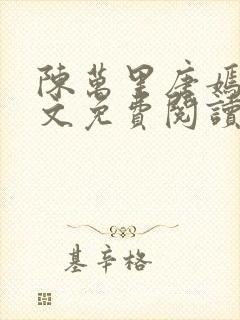 陳萬里唐嫣
文免費閱讀
基辛格